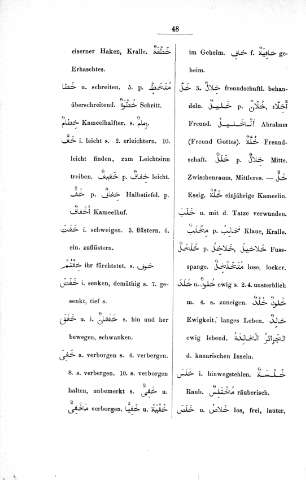 48
eiserner Haken, Kralle. خَطْفَة
Erhaschtes.
خَطَا u. schreiten. 5. p. مُتَخَطٍّ
überschreitend. خُطْوَة Schritt.
خِطَام Kameelhalfter. s.
خَفَّ i. leicht s. 2. erleichtern. 10.
leicht finden, zum Leichtsinn
treiben. خَفِيف p. خِفَاف leicht.
خُفّ p. خِفَاف Halbstiefel. p.
أَخْفَاف Kameelhuf.
خَفَتَ i. schweigen. 3. flüstern. 4.
einzuflüstern.
خِفْتُمْ ihr fürchtetet. s. خوف
خَفَضَ i. senken, demüthig s. 7. ge-
senkt, tief s.
خَفَقَ u. i. خَفَقَان s. hin und her
bewegen, schwanken.
خَفِيَ a. verborgen s. 4. verbergen.
8. s. verbergen. 10. s. verborgen
halten, unbemerkt s. خَفِيّ u.
مَخْفِيّ verborgen. خُفْيَة u.
im Geheim. خَافٍ f. خَافِيَة ge-
heim.
خَلَّ 3. خِلَال freundschaftl. behan-
deln. خَلِيل p. خُلَّان, أَخِلَّاء
Freund. الخَلِيل Abraham
(Freund Gottes). خُلَّة Freund-
schaft. خَلَل p. خِلَال Mitte.
Zwischenraum, Mittleres. — خَلّ
Essig. خَلّ einjährige Kameelin.
خَلَبَ u. mit d. Tatze verwunden.
مِخْلَب p. مَخَالِب Klaue, Kralle.
خَلْخَال p. خَلَاخِل, خَلَاخِيل Fuss-
spange. مُتَخَلْخِل lose, locker.
خَلَدَ u. خُلُود ewig s. 2. 4. unsterblich
m. 4. s. zuneigen. خُلْد, خُلُود
Ewigkeit, langes Leben. خَالِد
ewig lebend. الجَزَائِر الخَالِدَة
d. kanarischen Inseln.
خَلَسَ i. hinwegstehlen. خُلْسَة
Raub. مُخْتَلِس räuberisch.
خَلَصَ u. خَلَاص u. los, frei, lauter,